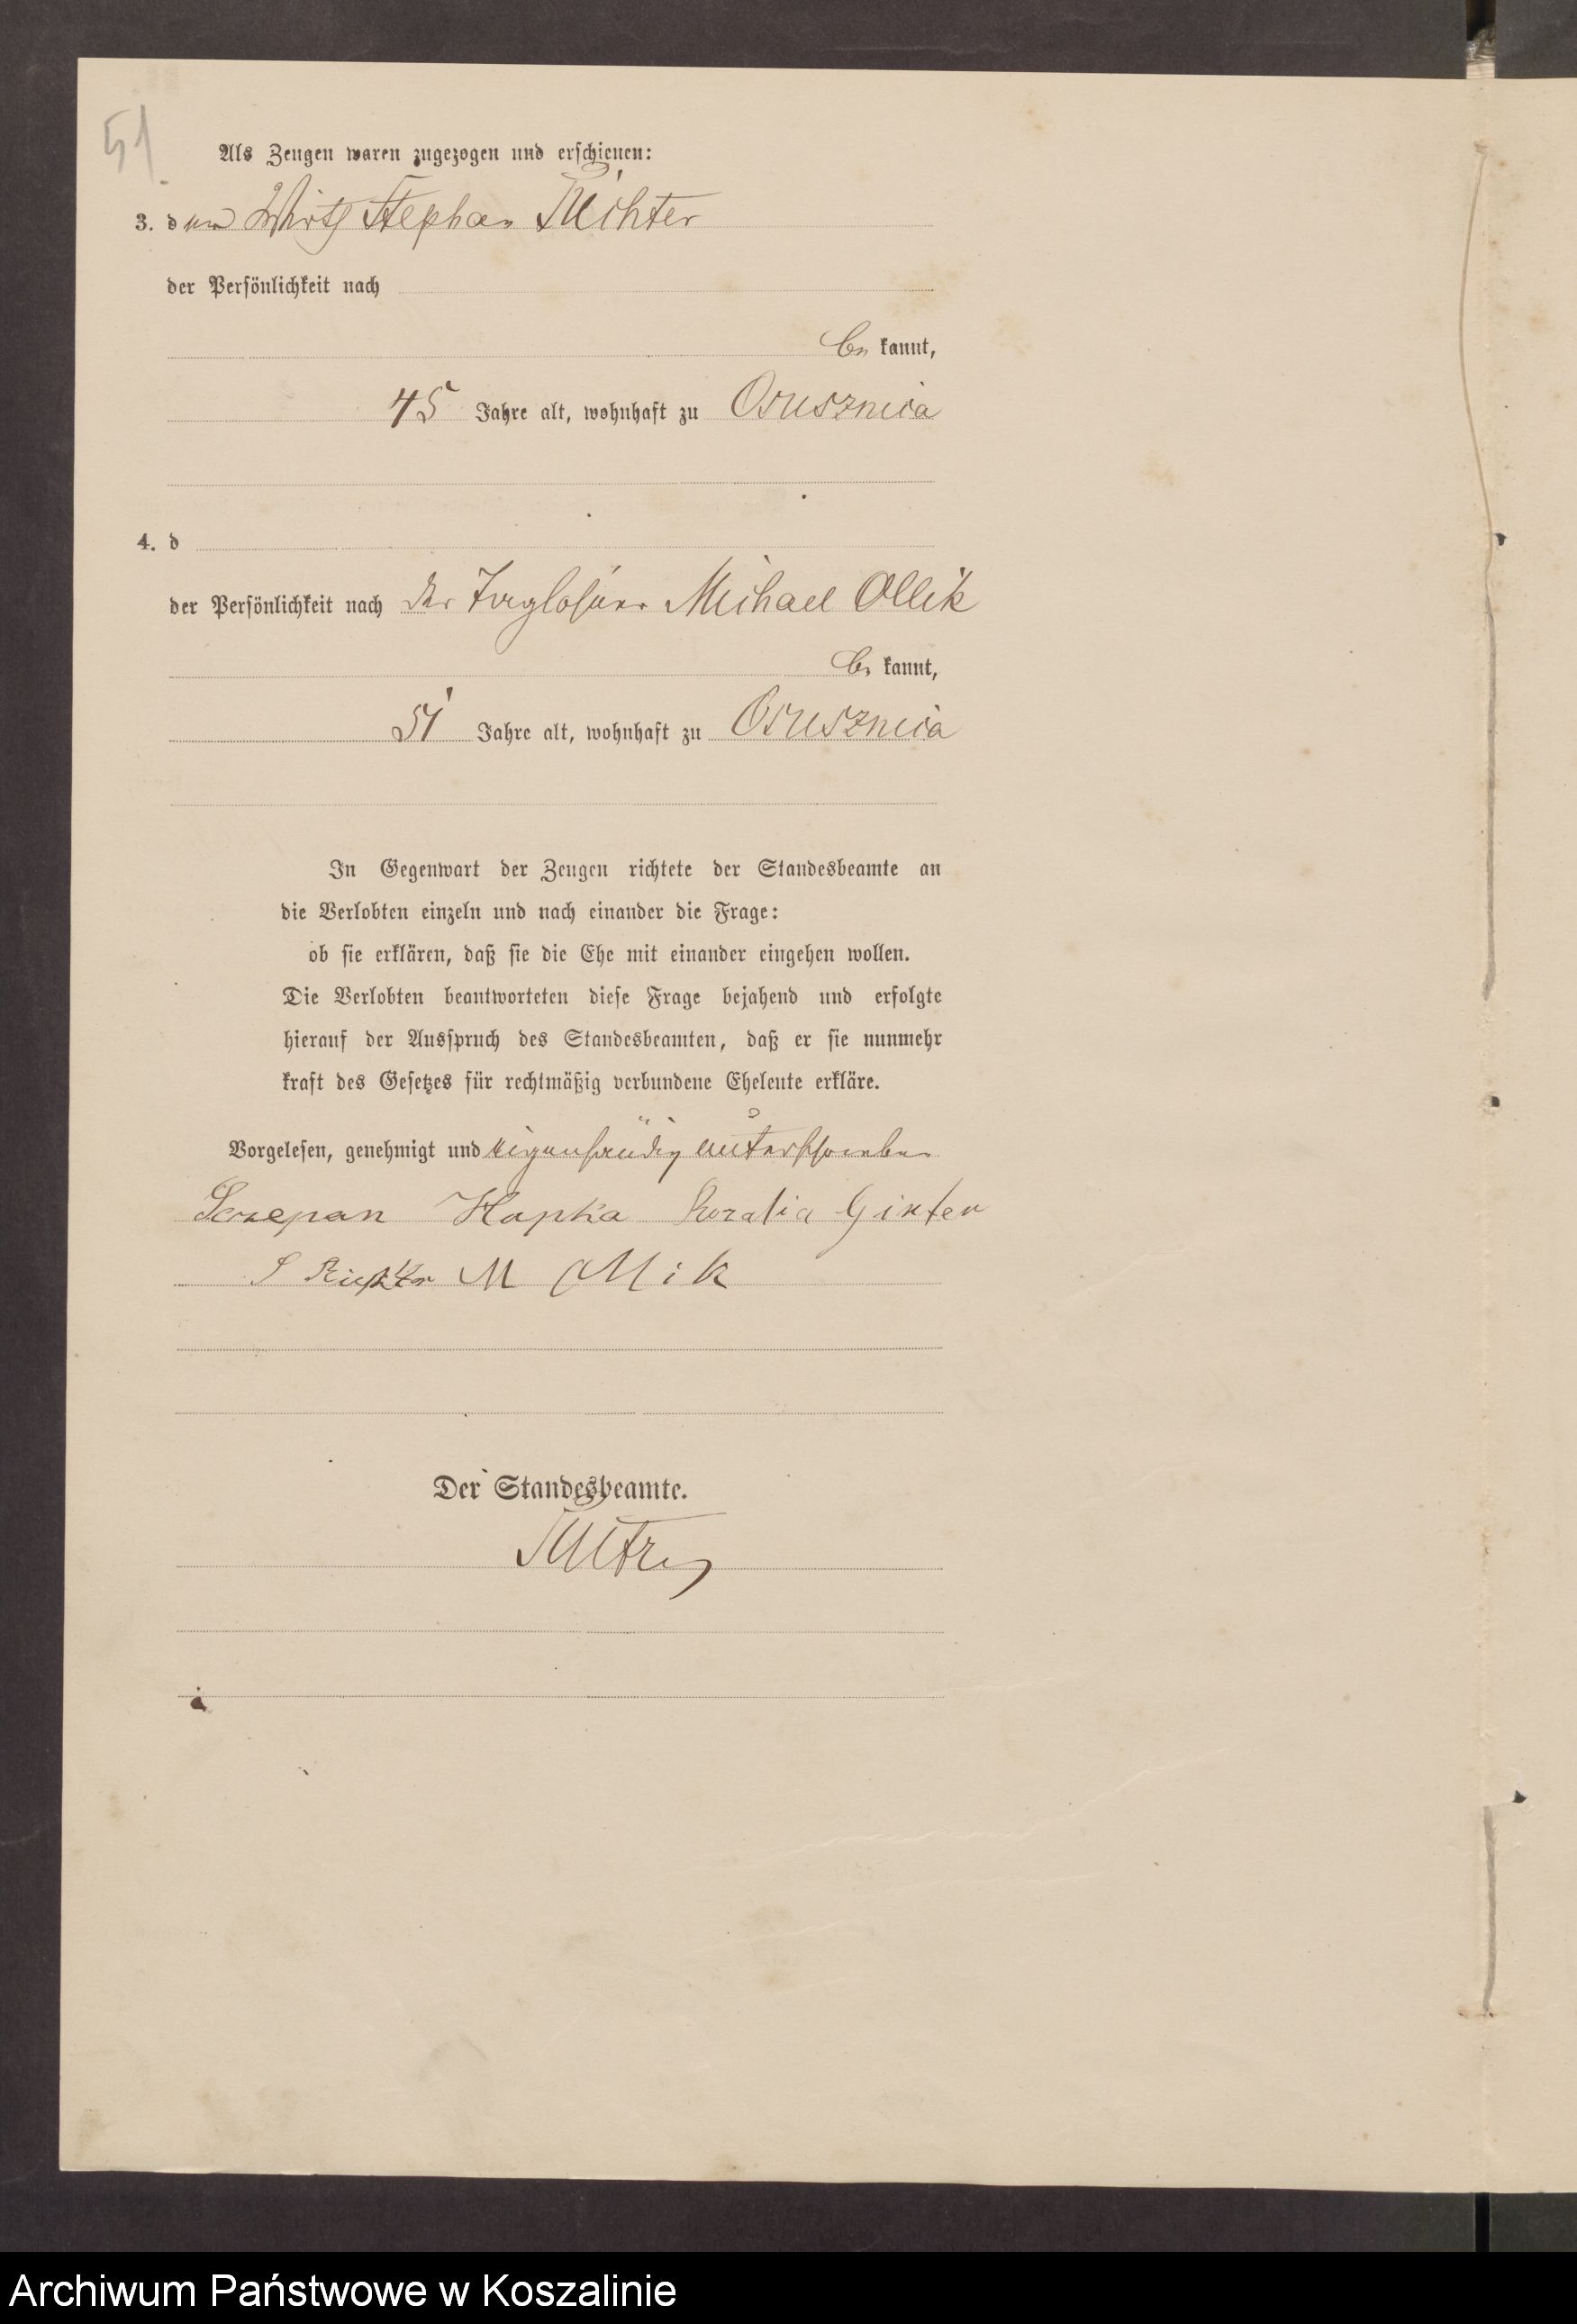 51
Als Zeugen waren zugezogen und erschienen:
3. der Wirth Stephan Richter
der Persönlichkeit nach
be kannt,
45 Jahre alt, wohnhaft zu Osusznica
4. d
der Persönlichkeit nach der Tagelöhner Michael Ollik
be kannt,
51 Jahre alt, wohnhaft zu Osusznica
In Gegenwart der Zeugen richtete der Standesbeamte an
die Verlobten einzeln und nach einander die Frage:
ob sie erklären, daß sie die Ehe mit einander eingehen wollen.
Die Verlobten beantworteten diese Frage bejahend und erfolgte
hierauf der Ausspruch des Standesbeamten, daß er sie nunmehr
kraft des Gesetzes für rechtmäßig verbundene Eheleute erkläre.
Vorgelesen, genehmigt und eigenhändig unterschrieben
Sczepan Hapka Rozalia Ginter
S Richter M Ollik
Der Standesbeamte.
Archiwum Państwowe w Koszalinie